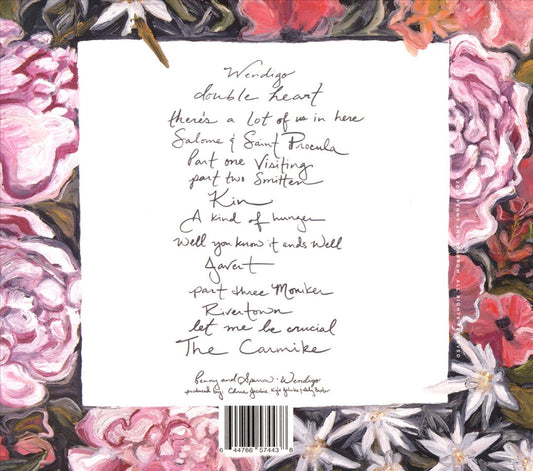 Wendigo
double heart
there's a lot of us in here
Salome & Saint Procula
Part one Visiting
part two Smitten
Kin
A kind of hunger
Well you know it ends well
Javert
part three Moniker
Rivertown
let me be crucial
The Carmike
Penny and Sparrow · Wendigo
produced by Chris Jacobie Kyle
6 44766 57443 8